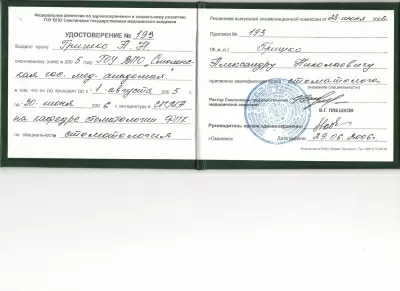 Федеральное агентство по здравоохранению и социальному развитию
ГОУ ВПО Смоленская государственная медицинская академия
УДОСТОВЕРЕНИЕ № 193
Выдано врачу Грицеко А. Н.
окончившему (шей) в 2005 году ГОУ ВПО „Смоленская гос. мед. академия"
в том, что он (а) прошел (а) с 1 августа 2005 г.
30 июня 2006 г. интернатуру в СГМА
на кафедре стоматологии ФПК
по специальности стоматология
Решением выпускной экзаменационной комиссии от 29 июня 2006
Протокол № 193
(Ф.и.о.) Грицко
Александру Николаевичу
присвоена квалификация врача стоматолога
(название специальности)
Ректор Смоленской государственной
медицинской академии
В.Г. ПЛЕШКОВ
Руководитель органа здравоохранения
г.Смоленск 29.06.2006г.